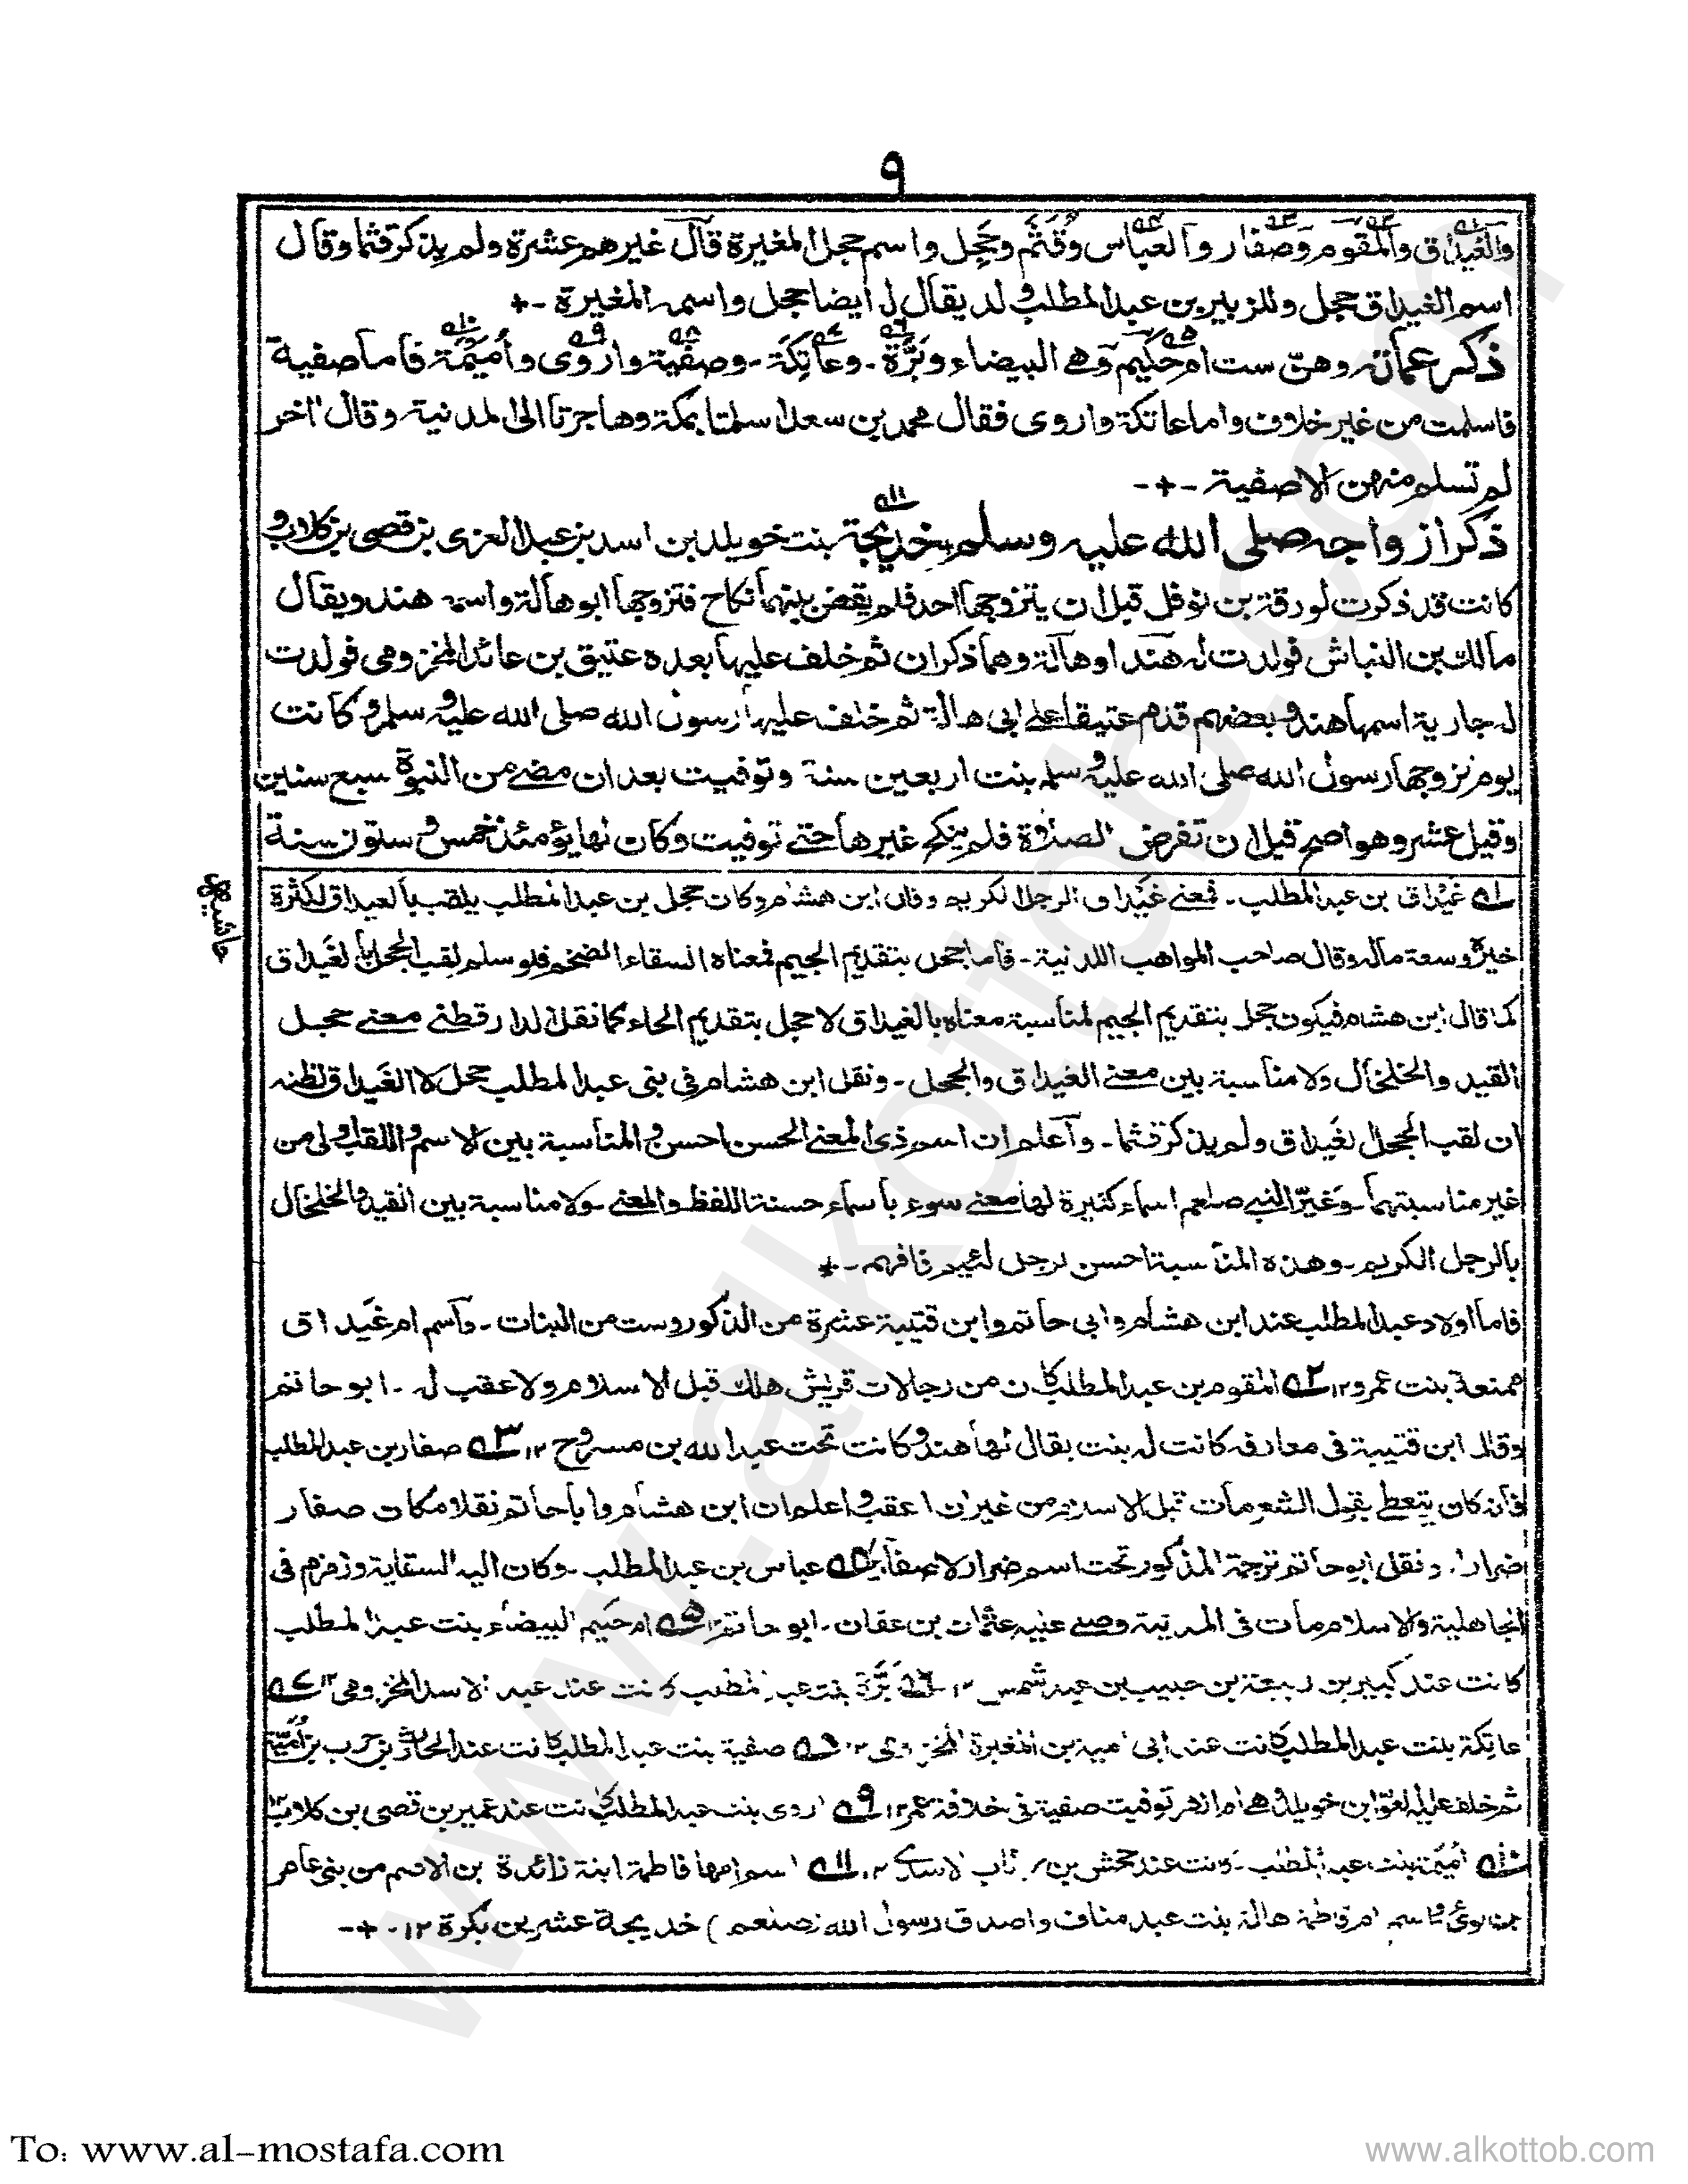 ٩
والغيداق والمقوم وصفار والعباس وقثم وحجل واسم حجل المغيرة قال غيرهم عشرة ولم يذكر قثما وقال
اسم الغيداق حجل وللزبير بن عبد المطلب ولد يقال له ايضا حجل واسمه المغيرة -+
ذكر عماته وهن ست ام حكيم وهي البيضاء وبرة - وعاتكة - وصفية واروى وأميمة فاما صفية
فاسلمت من غير خلاف واما عاتكة واروى فقال محمد بن سعد اسلمتا بمكة وهاجرتا الى المدنية وقال آخر
لم تسلم منهن الا صفية -+-
ذكر ازواجه صلى الله عليه وسلم خديجة بنت خويلد بن اسد بن عبد العزى بن قصى بن كلاب و
كانت قد ذكرت لورقة بن نوفل قبل ان يتزوجها احد فلم يقض بينهما نكاح فتزوجها ابو هالة واسمه هند ويقال
مالك بن النباش فولدت له هندا وهالة وهما ذكران ثم خلف عليها بعده عتيق بن عائذ المخزومى فولدت
له جارية اسمها هند وبعضهم قدم عتيقا على ابى هالة ثم خلف عليها رسول الله صلى الله عليه وسلم وكانت
يوم تزوجها رسول الله صلى الله عليه وسلم بنت اربعين سنة وتوفيت بعد ان مضے من النبوة سبع سنين
وقيل عشر وهو اصح قبل ان تفرض الصلاة فلم ينكح غيرها حتے توفيت وكان لها يومئذ خمس و ستون سنة
حاشيه
١ غيداق بن عبد المطلب - فمعنے غيداق الرجل الكريم وقال ابن هشام وكان حجل بن عبد المطلب يلقب بالغيداق لكثرة
خيره وسعة ماله وقال صاحب المواهب اللدنية - فاما جحل بتقديم الجيم فمعناه السقاء الضخم فلو سلم لقب الجحل بالغيداق
كما قال ابن هشام فيكون جحل بتقديم الجيم لمناسبة معناه بالغيداق لا حجل بتقديم الحاء كما نقل الدارقطنے معنے حجل
القيد والخلخال ولا مناسبة بين معنے الغيداق والحجل - ونقل ابن هشام فى بنى عبد المطلب حجل لا الغيداق لظنه
ان لقب الحجل لغيداق ولم يذكر قثما - واعلم ان اسم ذى المعنے الحسن احسن و المناسبة بين الاسم و اللقب اولى من
غير مناسبتهما - وغيّر النبى صلعم اسماء كثيرة لها معنے سوء باسماء حسنة اللفظ والمعنے - ولا مناسبة بين القيد والخلخال
بالرجل الكريم - وهذه المناسبة احسن لرجل لئيم فافهم -+
فاما اولاد عبد المطلب عند ابن هشام وابى حاتم وابن قتيبة عشرة من الذكور وست من البنات - واسم ام غيداق
ممنعة بنت عمرو ١٢ ٢ المقوم بن عبد المطلب كان من رجالات قريش هلك قبل الاسلام ولا عقب له - ابو حاتم
وقال ابن قتيبة فى معارفه كانت له بنت يقال لها هند وكانت تحت عبد الله بن مسروح ١٢ ٣ صفار بن عبد المطلب
فانه كان يتعطے بقول الشعر مات قبل الاسلام من غير ان اعقب و اعلم ان ابن هشام وابا حاتم نقلا مكان صفار
ضرارا . ونقل ابو حاتم ترجمة المذكور تحت اسم ضرار لا صفار ٤ عباس بن عبد المطلب - وكان اليه السقاية وزمزم فى
الجاهلية والاسلام مات فى المدينة وصلے عليه عثمان بن عفان - ابو حاتم ١٢ ٥ ام حكيم البيضاء بنت عبد المطلب
كانت عند كبير بن ربيعة بن حبيب بن عبد شمس ١٢ ٦ برّة بنت عبد المطلب كانت عند عبد الاسد المخزومى ١٢ ٧
عاتكة بنت عبد المطلب كانت عند ابى امية بن المغيرة المخزومى ١٢ ٨ صفية بنت عبد المطلب كانت عند الحارث بن حرب بن امية
ثم خلف عليها العوام ابن خويلد وهے ام الزهر توفيت صفية فى خلافة عمر ١٢ ٩ اروى بنت عبد المطلب كانت عند عمير بن قصى بن كلاب ١٢
١٠ أميمة بنت عبد المطلب - كانت عند جحش بن رئاب الاسدے ١٢ ١١ اسم امها فاطمة ابنة زائدة بن الاصم من بنى عامر
بن لوئ و اسم ام فاطمة هالة بنت عبد مناف واصدق رسول الله (صلعم) خديجة عشرين بكرة ١٢ -+-
To: www.al-mostafa.com
www.alkottob.com